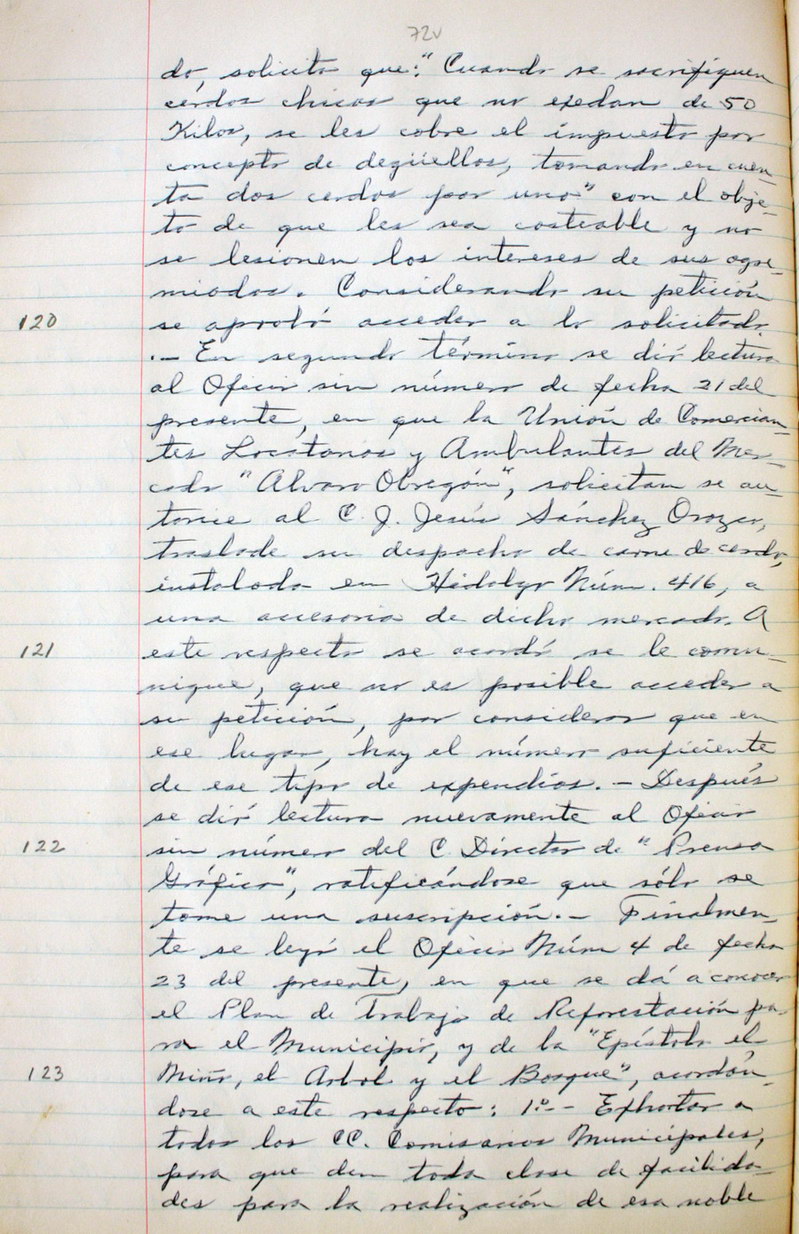 72v
do, solicita que: "Cuando se sacrifiquen
cerdos chicos que no exedan de 50
Kilos, se les cobre el impuesto por
concepto de degüellos, tomando en cuen-
ta dos cerdos por uno" con el obje-
to de que les sea costeable y no
se lesionen los intereses de sus agre-
miados. Considerando su petición
120 se aprobó acceder a lo solicitado.
.- En segundo término se dió lectura
al Oficio sin número de fecha 21 del
presente, en que la Unión de Comercian-
tes Locatarios y Ambulantes del Mer-
cado "Alvaro Obregón", solicitan se au-
torice al C. J. Jesús Sánchez Orozco,
traslade su despacho de carne de cerdo,
instalado en Hidalgo Núm. 416, a
una accesoria de dicho mercado. A
121 este respecto se acordó se le comu-
nique, que no es posible acceder a
su petición, por considerar que en
ese lugar, hay el número suficiente
de ese tipo de expendios. - Después
se dió lectura nuevamente al Oficio
122 sin número del C. Director de "Prensa
Gráfica", ratificándose que sólo se
tome una suscripción. - Finalmen-
te se leyó el Oficio Núm 4 de fecha
23 del presente, en que se dá a conocer
el Plan de Trabajo de Reforestación pa-
ra el Municipio, y de la "Epístola el
123 Niño, el Arbol y el Bosque", acordán-
dose a este respecto: 1º.- Exhortar a
todos los CC. Comisarios Municipales,
para que den toda clase de facilida-
des para la realización de esa noble